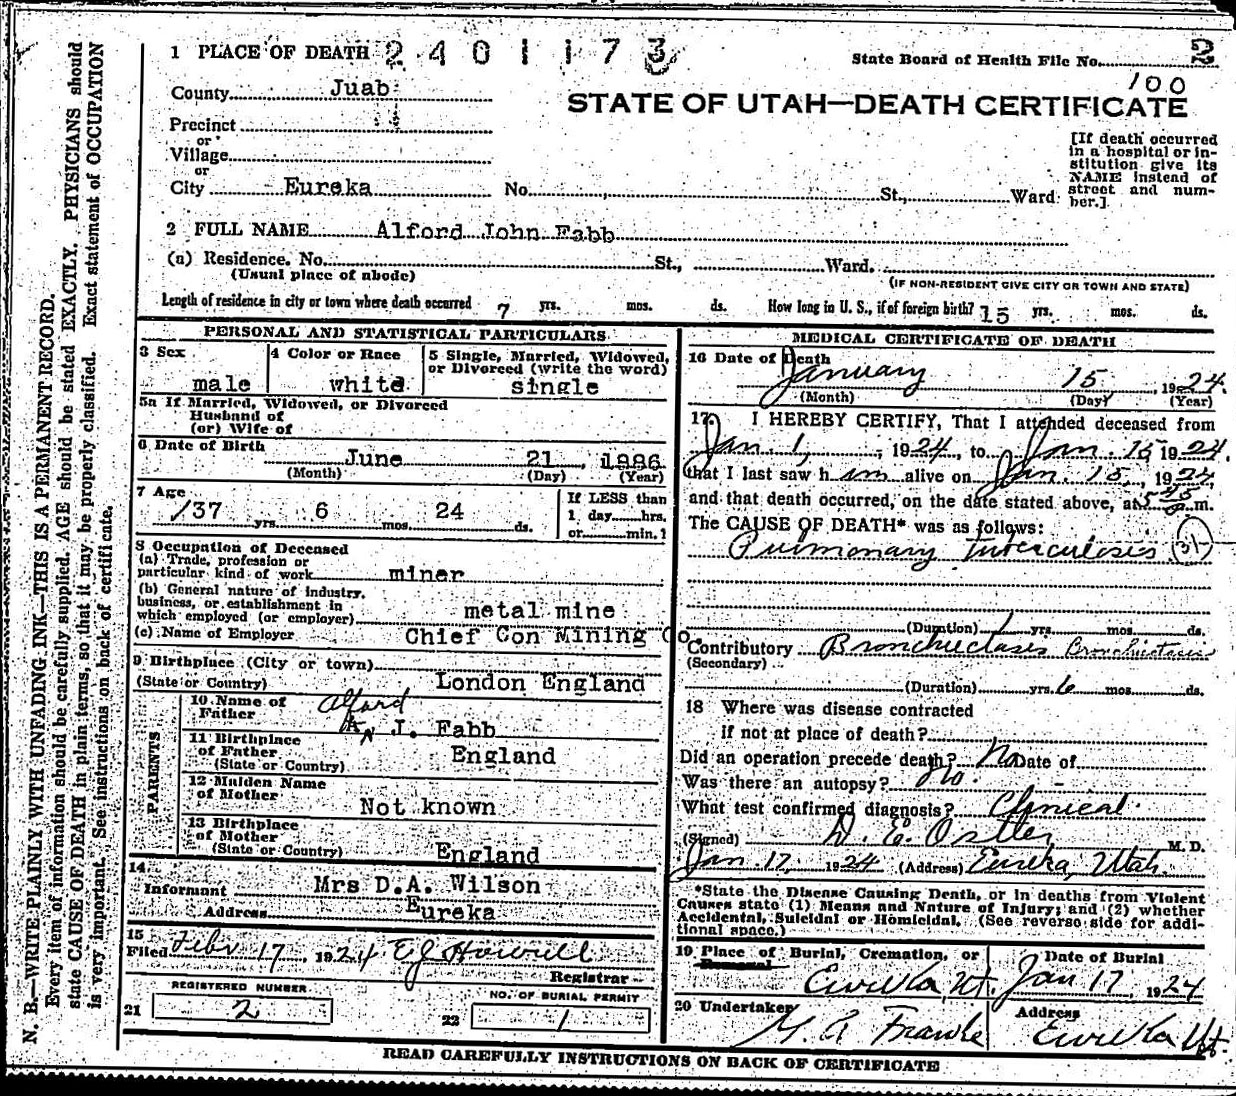 1 PLACE OF DEATH 2401173
State Board of Health File No. 2
100
County Juab
STATE OF UTAH—DEATH CERTIFICATE
Precinct
or
Village
or
City Eureka No. St., Ward
[If death occurred
in a hospital or in-
stitution give its
NAME instead of
street and num-
ber.]
2 FULL NAME Alford John Fabb
(a) Residence. No. St., Ward.
(Usual place of abode) (IF NON-RESIDENT GIVE CITY OR TOWN AND STATE)
Length of residence in city or town where death occurred 7 yrs. mos. ds. How long in U. S., if of foreign birth? 15 yrs. mos. ds.
PERSONAL AND STATISTICAL PARTICULARS
3 Sex
male
4 Color or Race
white
5 Single, Married, Widowed,
or Divorced (write the word)
single
5a If Married, Widowed, or Divorced
Husband of
(or) Wife of
6 Date of Birth
June 21, 1886
(Month) (Day) (Year)
7 Age
37 yrs. 6 mos. 24 ds.
If LESS than
1 day hrs.
or min.?
8 Occupation of Deceased
(a) Trade, profession or
particular kind of work miner
(b) General nature of industry,
business, or establishment in
which employed (or employer) metal mine
(c) Name of Employer Chief Con Mining Co.
9 Birthplace (City or town)
(State or Country) London England
PARENTS
10 Name of
Father Alford
A J. Fabb
11 Birthplace
of Father
(State or Country) England
12 Maiden Name
of Mother
Not known
13 Birthplace
of Mother
(State or Country) England
14
Informant Mrs D.A. Wilson
Address Eureka
15
Filed Febr 17, 1924 E J Howell
Registrar
REGISTERED NUMBER
21 2
NO. OF BURIAL PERMIT
22 1
MEDICAL CERTIFICATE OF DEATH
16 Date of Death
January 15, 1924.
(Month) (Day) (Year)
17 I HEREBY CERTIFY, That I attended deceased from
Jan. 1, 1924, to Jan. 15 1924,
that I last saw h im alive on Jan. 15, 1924
and that death occurred, on the date stated above, at 5 45 P.m.
The CAUSE OF DEATH* was as follows:
Pulmonary Tuberculosis (31)
(Duration) 1 yrs. mos. ds.
Contributory Bronchiectases Bronchiectasis
(Secondary)
(Duration) yrs. 6 mos. ds.
18 Where was disease contracted
if not at place of death?
Did an operation precede death? No Date of
Was there an autopsy? No.
What test confirmed diagnosis? Clinical
(Signed) D. E. Ostler M. D.
Jan 17, 1924 (Address) Eureka, Utah.
*State the Disease Causing Death, or in deaths from Violent
Causes state (1) Means and Nature of Injury; and (2) whether
Accidental, Suicidal or Homicidal. (See reverse side for addi-
tional space.)
19 Place of Burial, Cremation, or
Removal
Eureka, Ut.
Date of Burial
Jan 17, 1924
20 Undertaker
Address
Eureka Ut.
READ CAREFULLY INSTRUCTIONS ON BACK OF CERTIFICATE
N. B.—WRITE PLAINLY WITH UNFADING INK—THIS IS A PERMANENT RECORD.
Every item of information should be carefully supplied. AGE should be stated EXACTLY. PHYSICIANS should
state CAUSE OF DEATH in plain terms, so that it may be properly classified. Exact statement of OCCUPATION
is very important. See instructions on back of certificate.